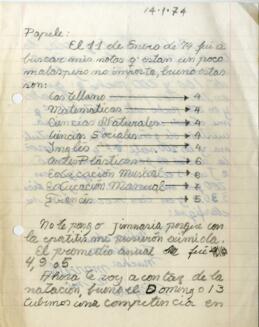 14-1-74
Papele:
El 11 de Enero de 74 fui a
buscar mis notas y estan un poco
malas pero no importa, bueno estas
son:
Castellano 4
Matematicas 4
Ciencias Naturales 4
Ciencias Sociales 4
Ingles 4
Artes Plásticas 6
Educación Musical 8
Educación Manual 7
Francés 5
No te pongo jimnaria porque con
la me pusieron eximida.
El promedio anual fué
4,9
Ahora te voy a contar de la
natación, bueno el Domingo 13
tubimos una competencia en